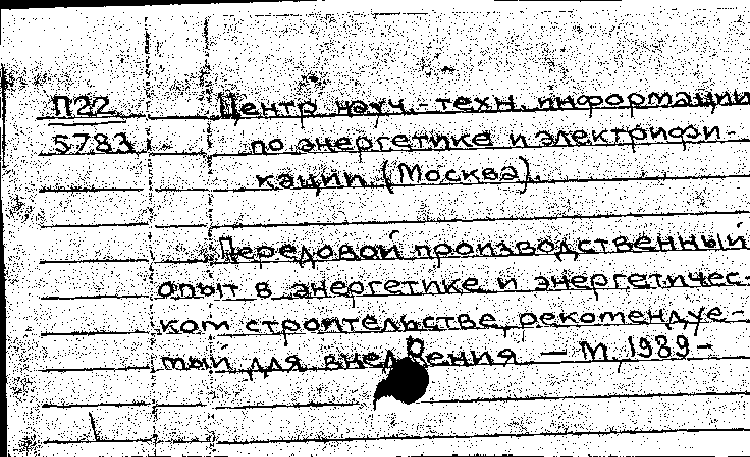 П22
5783
Центр науч.-техн. информации
по энергетике и электрифи-
кации (Москва).
Передовой производственный
опыт в энергетике и энергетичес-
ком строительстве, рекомендуе-
мый для внедрения — М, 1989-